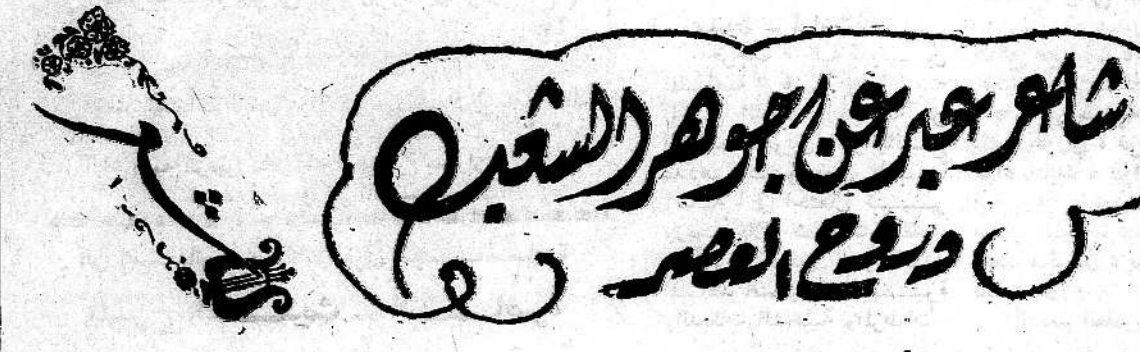 شاعر عبر عن جوهر الشعب
وروح العصر